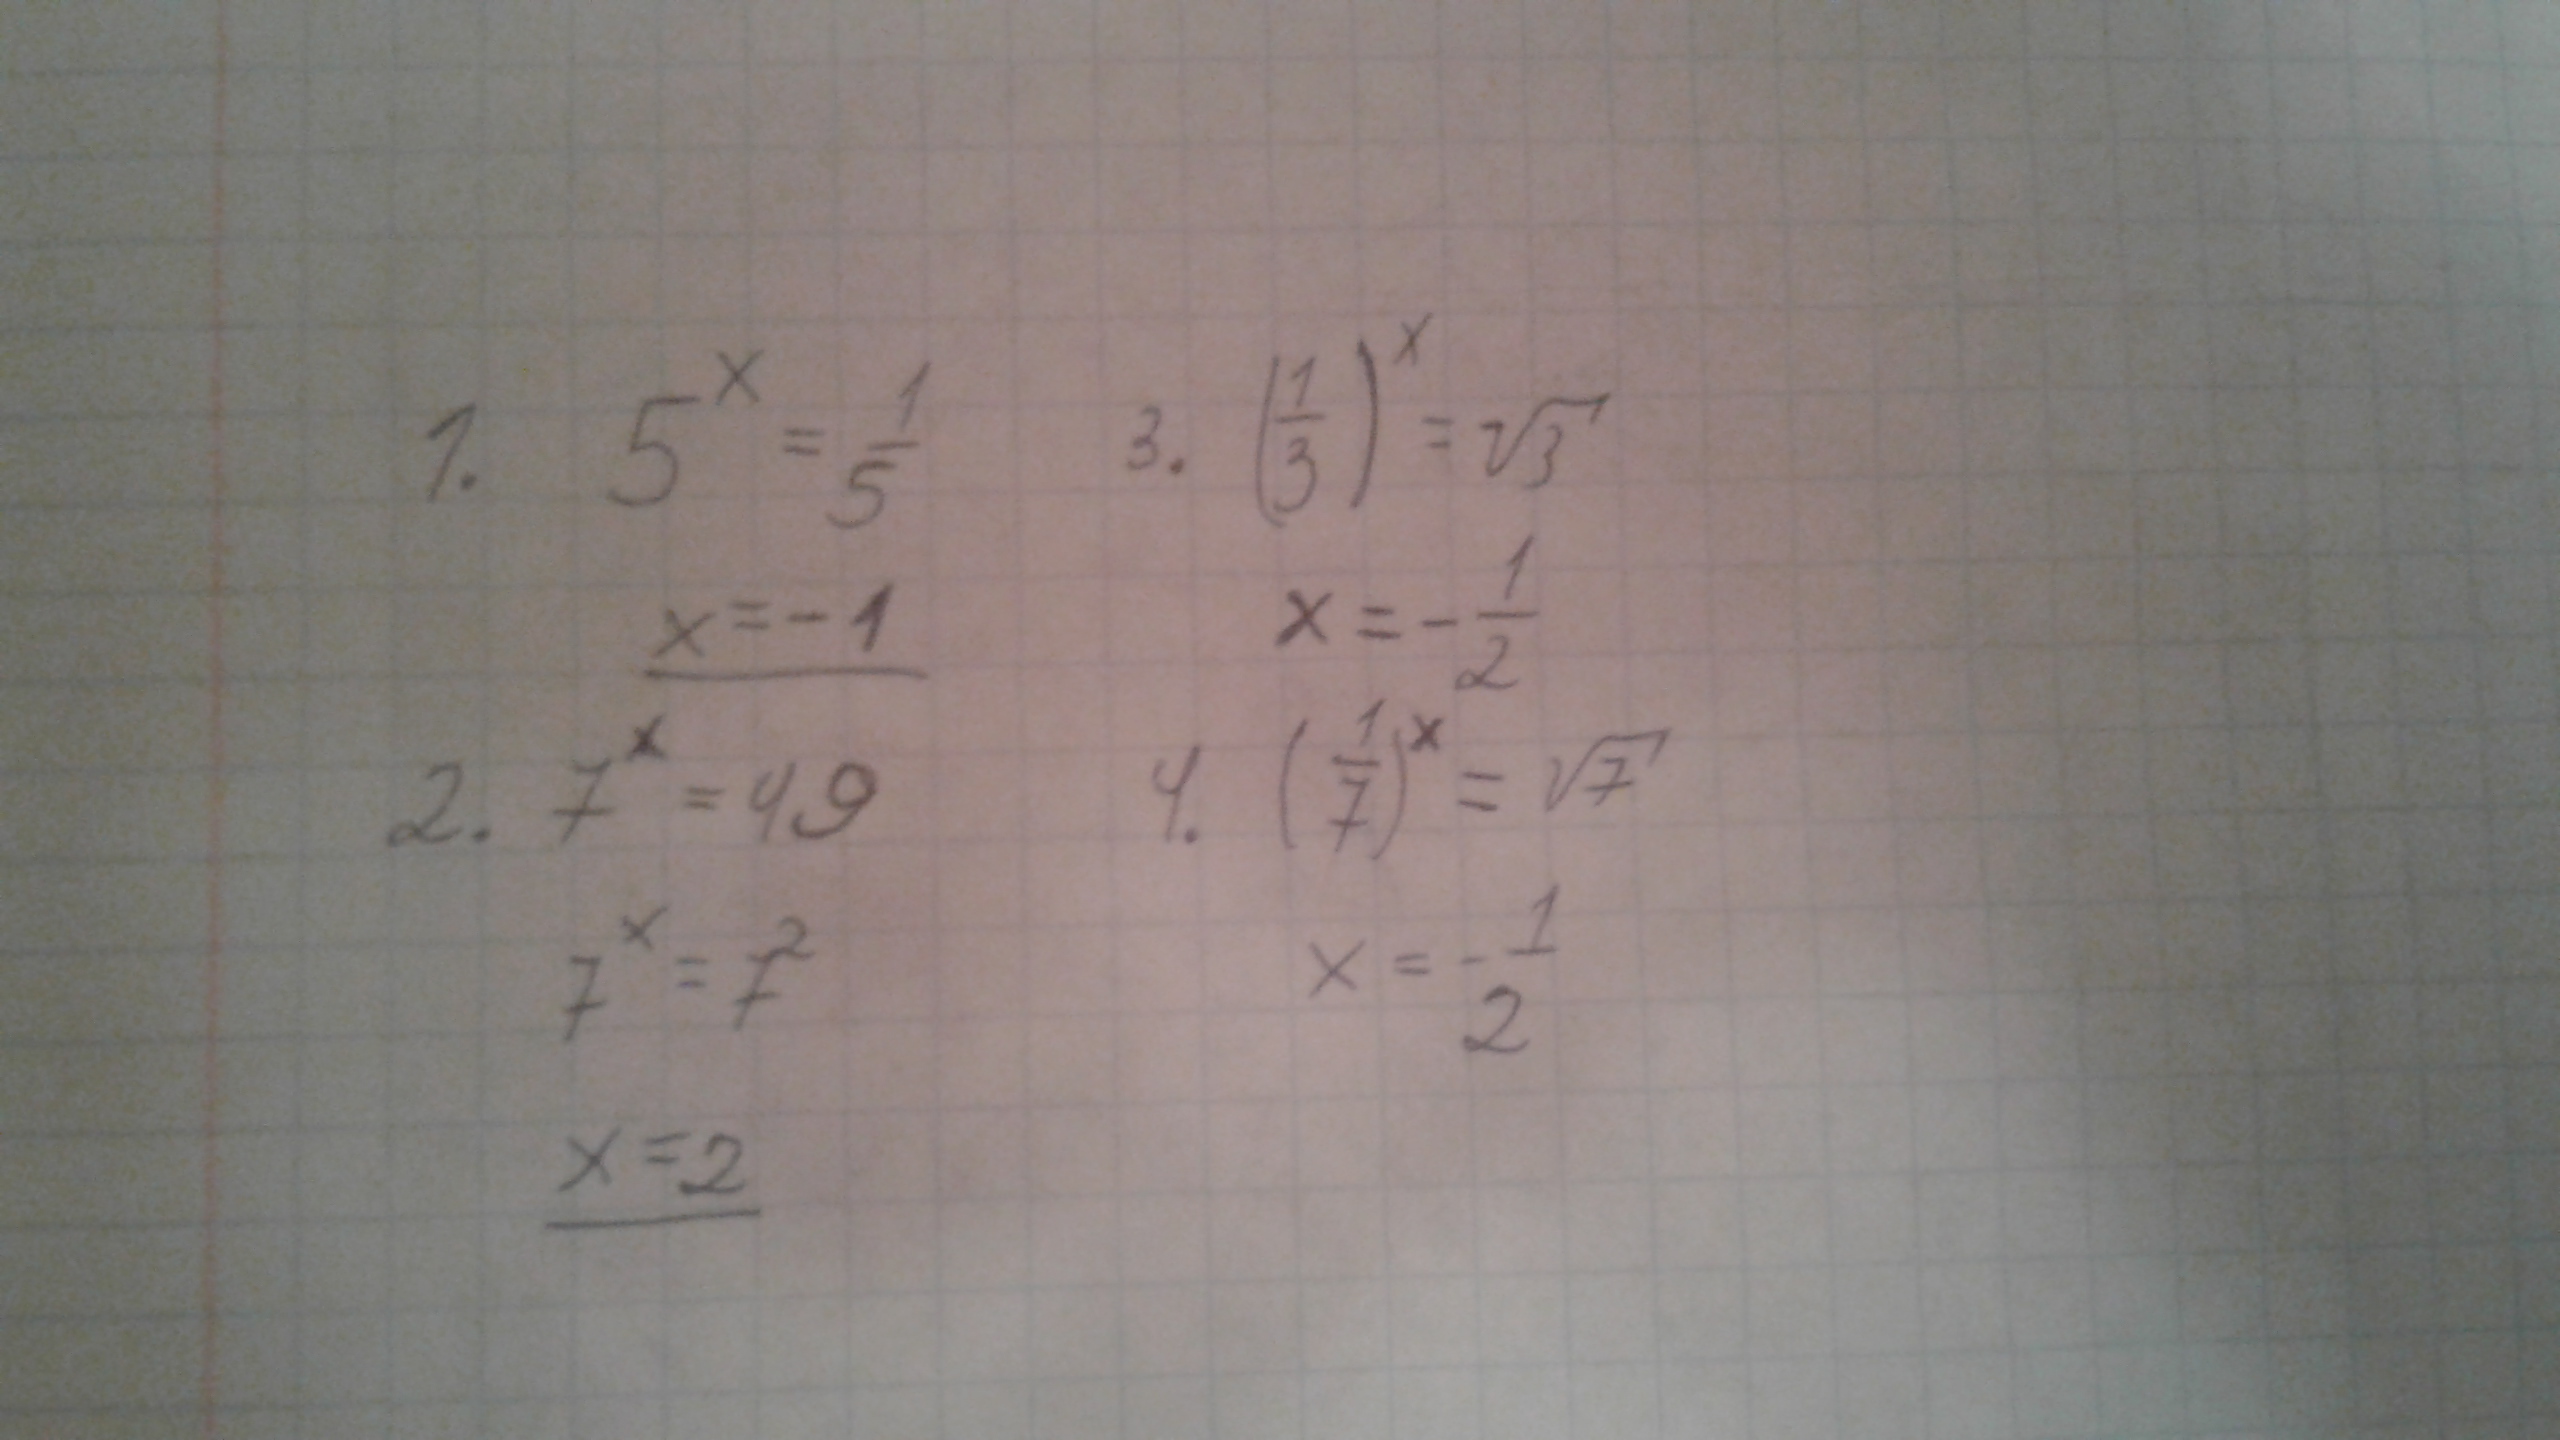 1. 5^x = 1/5
x = -1
2. 7^x = 49
7^x = 7^2
x = 2
3. (1/3)^x = √3
x = - 1/2
4. (1/7)^x = √7
x = - 1/2